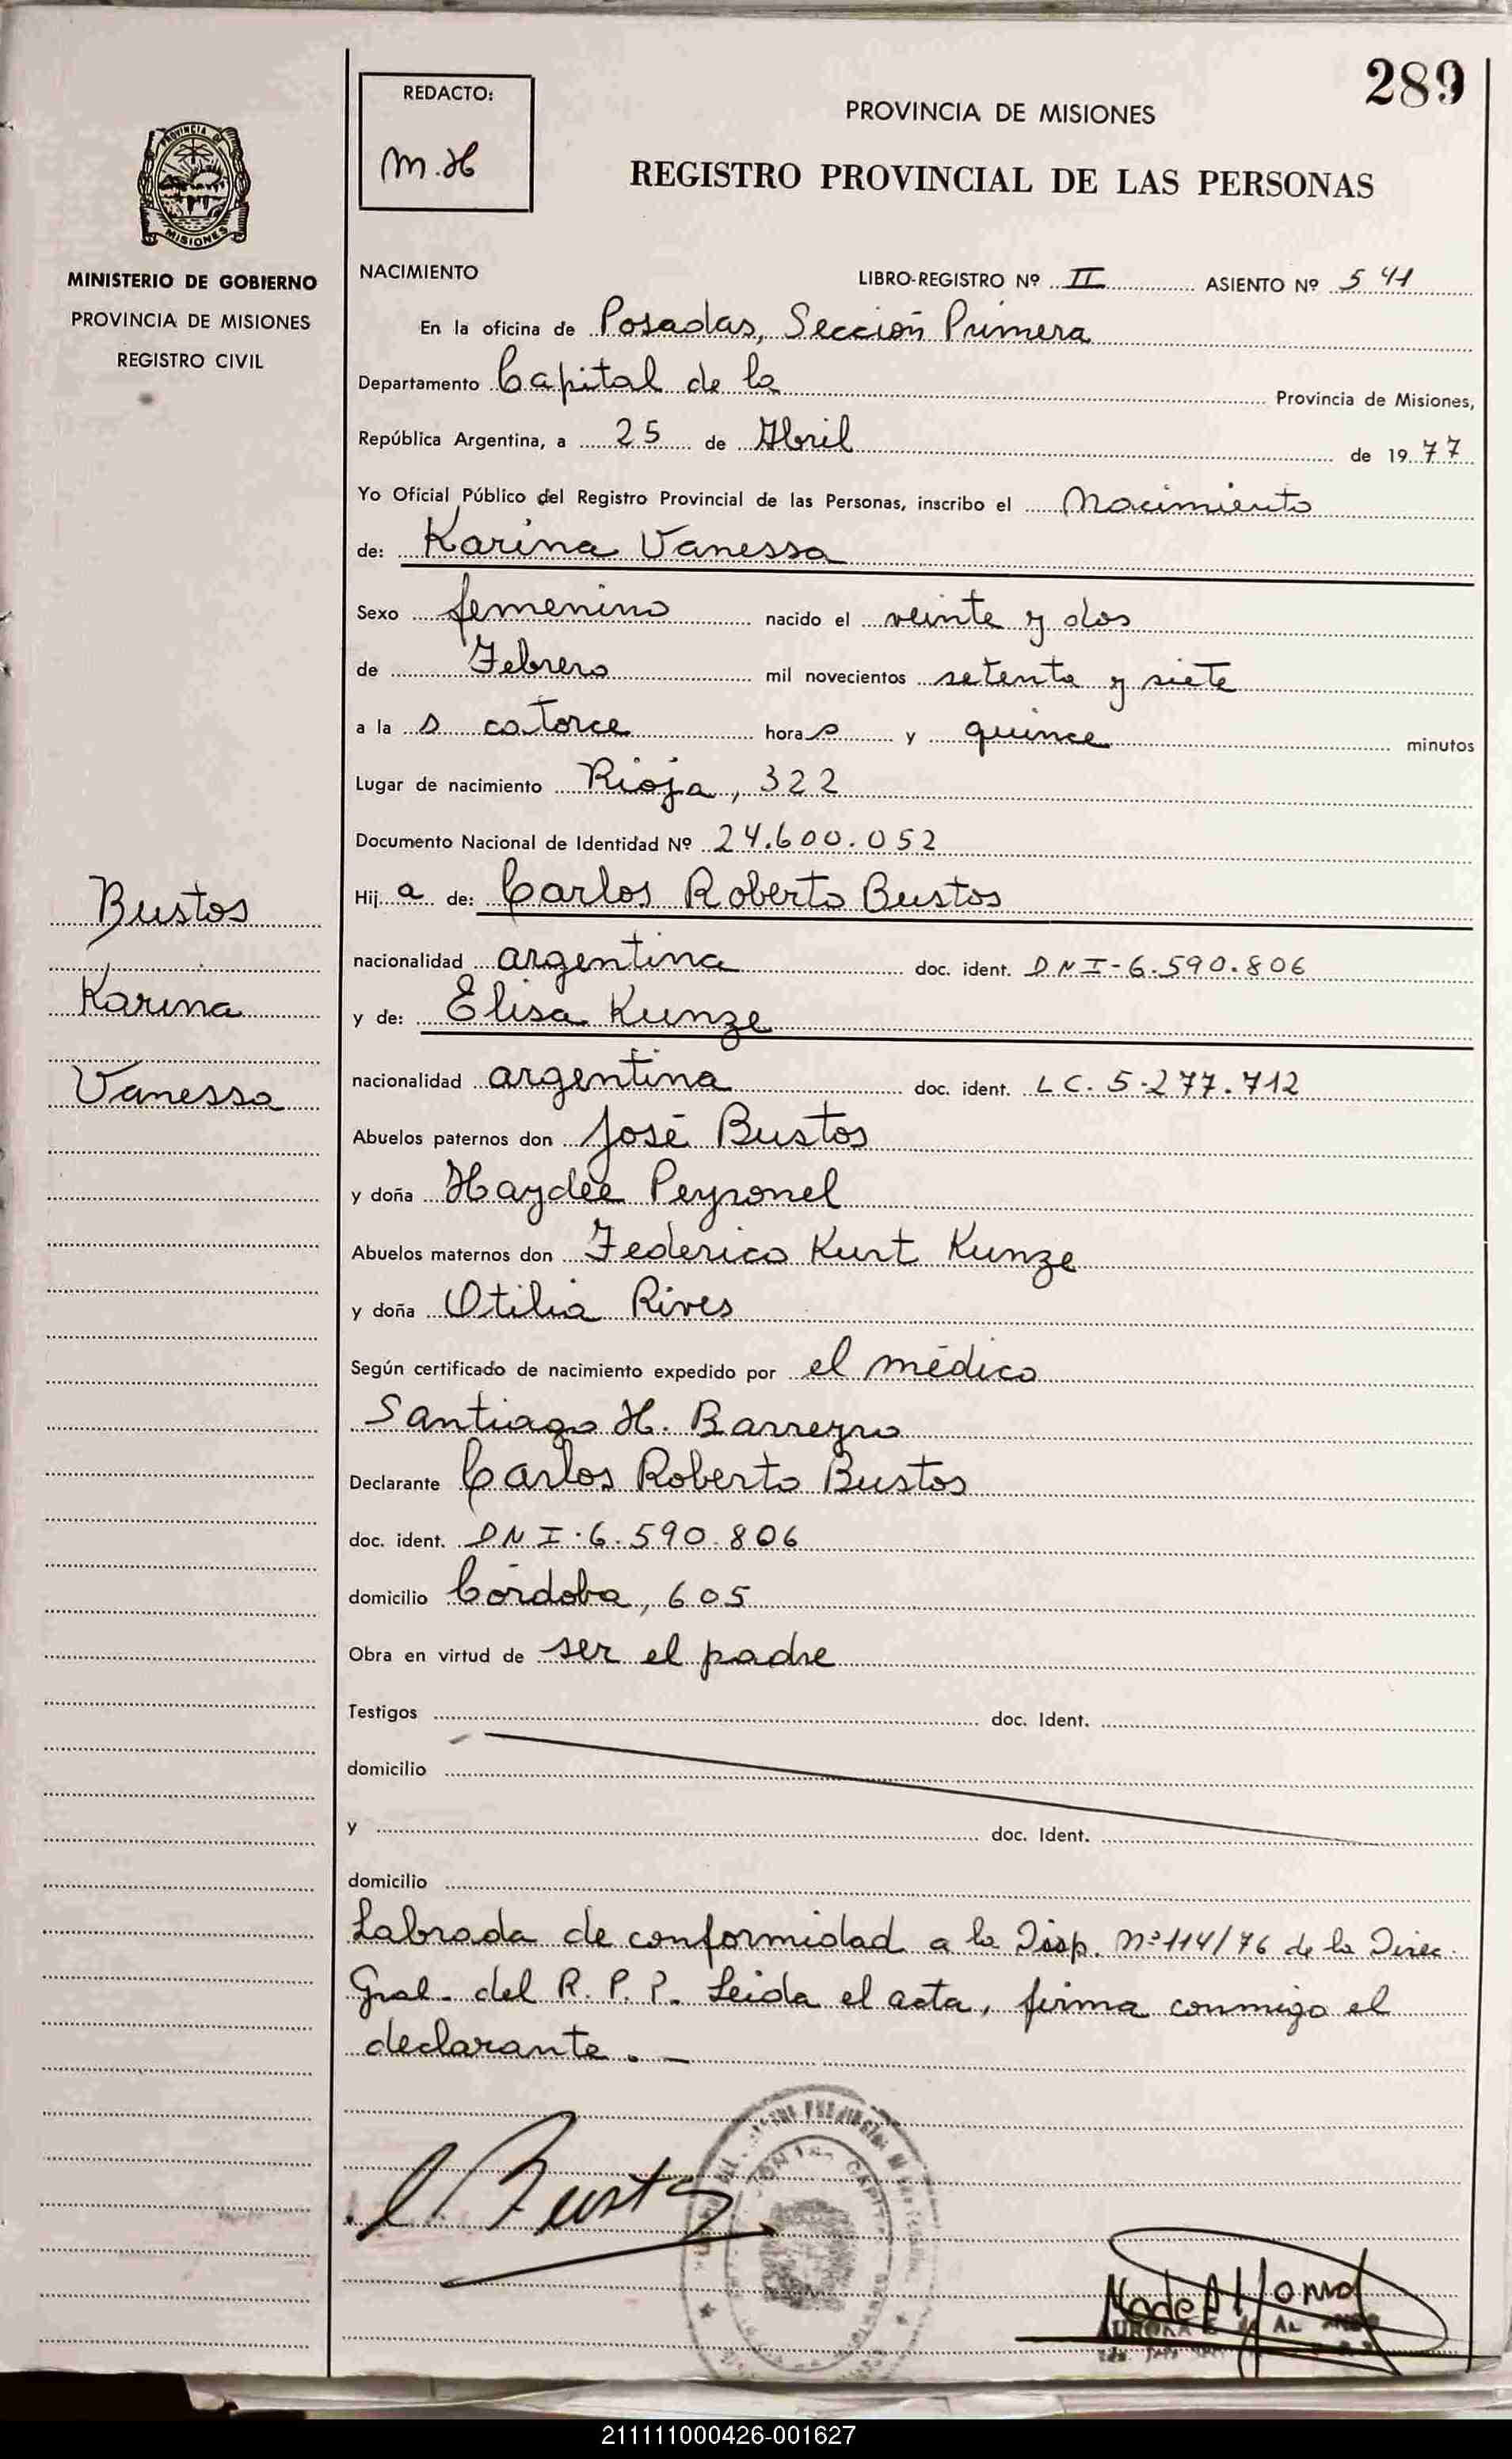 289
REDACTO:
M.H
PROVINCIA DE MISIONES
REGISTRO PROVINCIAL DE LAS PERSONAS
PROVINCIA DE
MISIONES
MINISTERIO DE GOBIERNO
PROVINCIA DE MISIONES
REGISTRO CIVIL
NACIMIENTO LIBRO-REGISTRO Nº II ASIENTO Nº 541
En la oficina de Posadas, Sección Primera
Departamento Capital de la Provincia de Misiones,
República Argentina, a 25 de Abril de 1977
Yo Oficial Público del Registro Provincial de las Personas, inscribo el Nacimiento
de: Karina Vanessa
Sexo femenino nacido el veinte y dos
de Febrero mil novecientos setenta y siete
a las catorce horas y quince minutos
Lugar de nacimiento Rioja, 322
Documento Nacional de Identidad Nº 24.600.052
Hija de: Carlos Roberto Bustos
nacionalidad argentina doc. ident. DNI-6.590.806
y de: Elisa Kunze
nacionalidad argentina doc. ident. LC. 5.277.712
Abuelos paternos don José Bustos
y doña Haydée Peyronel
Abuelos maternos don Federico Kurt Kunze
y doña Otilia Rives
Según certificado de nacimiento expedido por el médico
Santiago H. Barreyro
Declarante Carlos Roberto Bustos
doc. ident. DNI.6.590.806
domicilio Córdoba, 605
Obra en virtud de ser el padre
Testigos doc. Ident.
domicilio
y doc. Ident.
domicilio
Labrada de conformidad a la Disp. Nº 114/76 de la Direc.
Gral. del R. P. P. Leida el acta, firma conmigo el
declarante.
Bustos
Karina
Vanessa
C Bustos
211111000426-001627